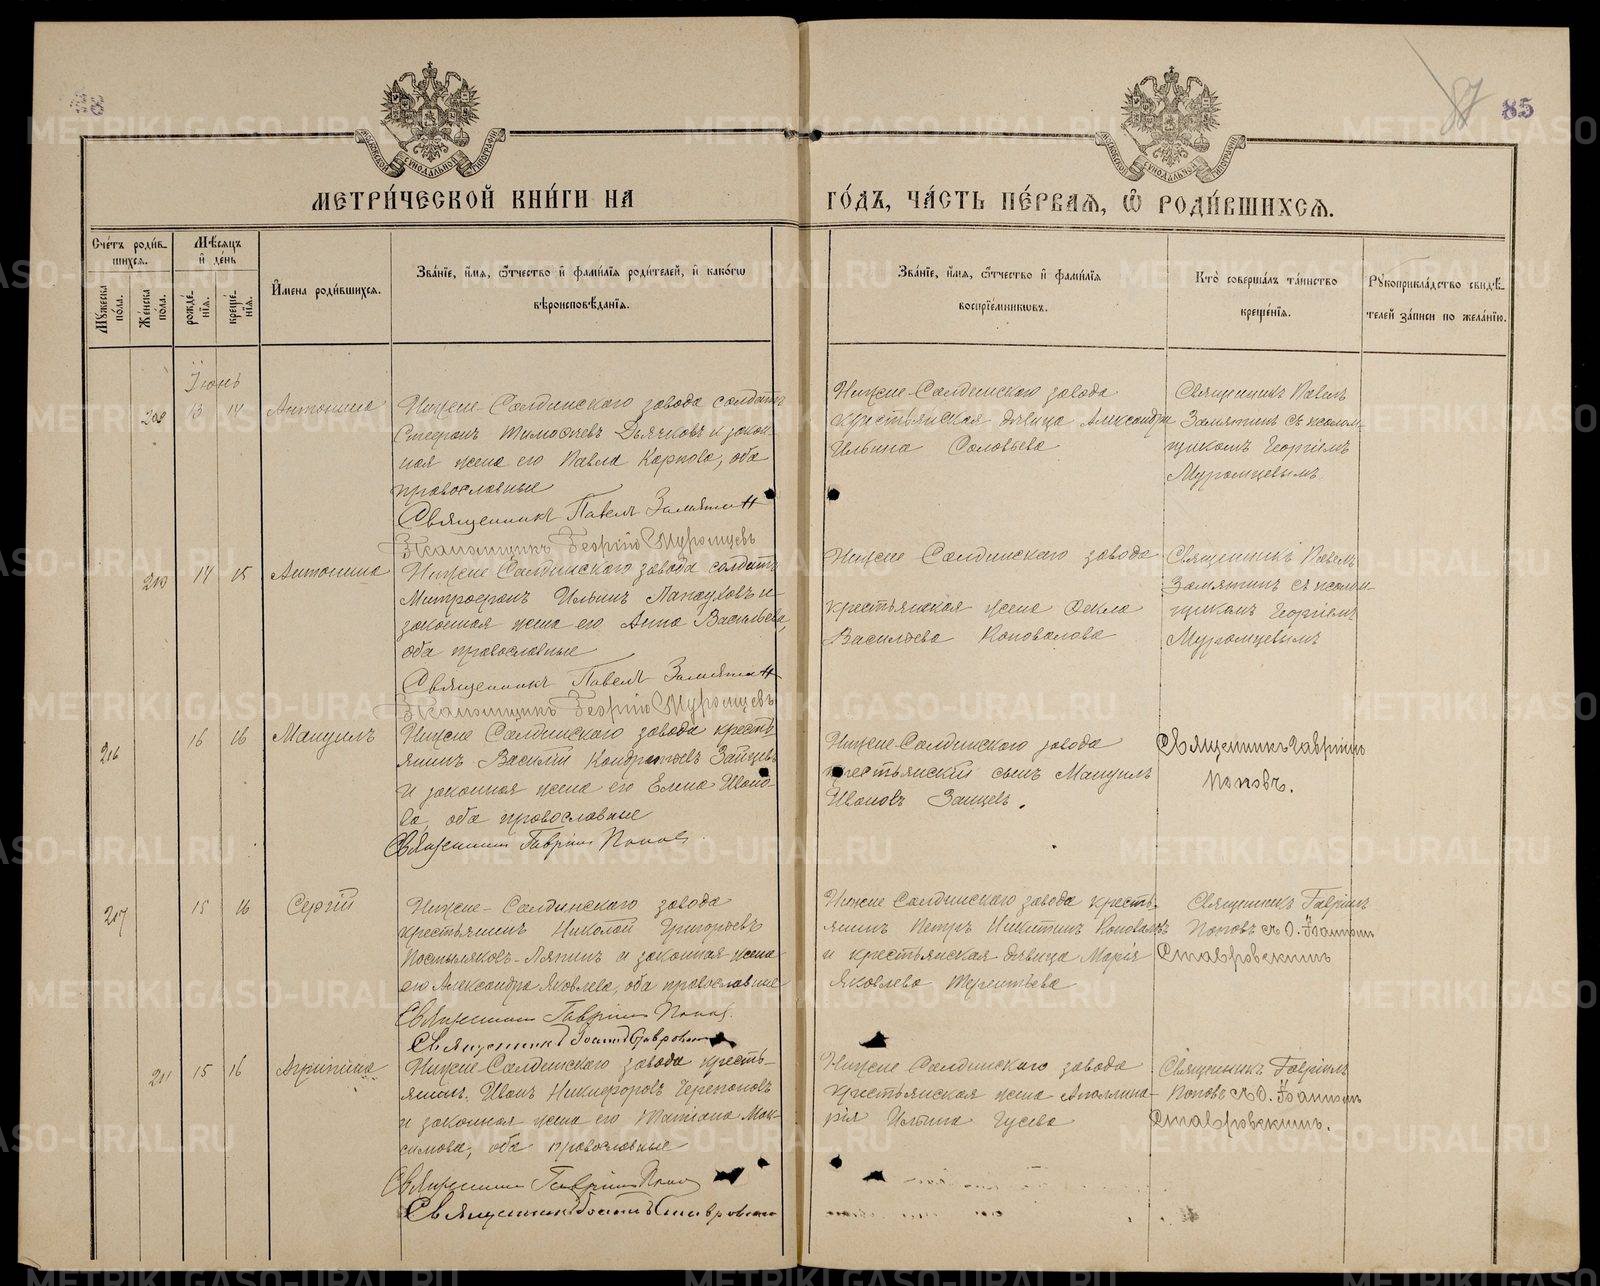 85
87
МЕТРИ́ЧЕСКОЙ КНИ́ГИ НА ГО́ДЪ, ЧА́СТЬ ПЕ́РВАѦ, Ѡ҆ РОДИ́ВШИХСѦ.
Сче́тъ роди́в-
шихсѧ.
Мꙋ́жеска по́ла.
Же́нска по́ла.
Мѣ́сѧцъ
и҆ де́нь
рожде́-
нїѧ.
креще́-
нїѧ.
И҆мена роди́вшихсѧ.
Зва́нїе, и҆́мѧ, ѻ҆́тчество и҆ фами́лїѧ роди́телей, и҆ како́гѡ
вѣроисповѣ́данїѧ.
Зва́нїе, и҆́мѧ, ѻ҆́тчество и҆ фами́лїѧ
воспрїе́мникѡвъ.
Кто̀ соверша́лъ та́инство
креще́нїѧ.
Рꙋкоприкла́дство свидѣ́-
телей за́писи по жела́нїю.
Іюнь
209 13 14 Антонина
Нижне-Салдинскаго завода солдатъ
Стефанъ Тимофеевъ Дьячковъ и закон-
ная жена его Павла Карпова, оба
православные
Священникъ Павелъ Замятин
Псаломщикъ Георгій Муромцевъ
Нижне-Салдинскаго завода
крестьянская дѣвица Александра
Ильина Соловьева
Священникъ Павелъ
Замятинъ съ псалом-
щикомъ Георгіемъ
Муромцевымъ
210 14 15 Антонина
Нижне Салдинскаго завода солдатъ
Митрофанъ Ильинъ Лапауховъ и
законная жена его Анна Васильева,
оба православные
Священникъ Павелъ Замятин
Псаломщикъ Георгій Муромцевъ
Нижне Салдинскаго завода
крестьянская жена Фекла
Васильева Коновалова
Священникъ Павелъ
Замятинъ съ псалом-
щикомъ Георгіемъ
Муромцевымъ
216 16 16 Мануилъ
Нижне Салдинскаго завода кресть-
янинъ Василій Кондратьевъ Зайцевъ
и законная жена его Елена Ивано-
ва, оба православные
Священник Гавріил Попов
Нижне-Салдинскаго завода
крестьянскій сынъ Мануилъ
Ивановъ Зайцевъ.
Священникъ Гавріилъ
Поповъ.
217 15 16 Сергій
Нижне-Салдинскаго завода
крестьянинъ Николай Григорьевъ
Постыляковъ-Ляпинъ и законная жена
его Александра Яковлева, оба православные
Священник Гавріил Попов.
Священникъ Іоаннъ Ставровскій
Нижне Салдинскаго завода кресть-
янинъ Петръ Никитинъ Коноваловъ
и крестьянская дѣвица Марія
Яковлева Терентьева
Священникъ Гавріилъ
Поповъ съ О. Іоанномъ
Ставровскимъ
211 15 16 Агрипина
Нижне-Салдинскаго завода кресть-
янинъ Иванъ Никифоровъ Черепановъ
и законная жена его Татіана Мак-
симова, оба православные
Священник Гавріил Попов
Священникъ Іоаннъ Ставровскій
Нижне Салдинскаго завода
крестьянская жена Аполлина-
рія Ильина Гусева
Священникъ Гавріилъ
Поповъ съ О. Іоанномъ
Ставровскимъ.
METRIKI.GASO-URAL.RU